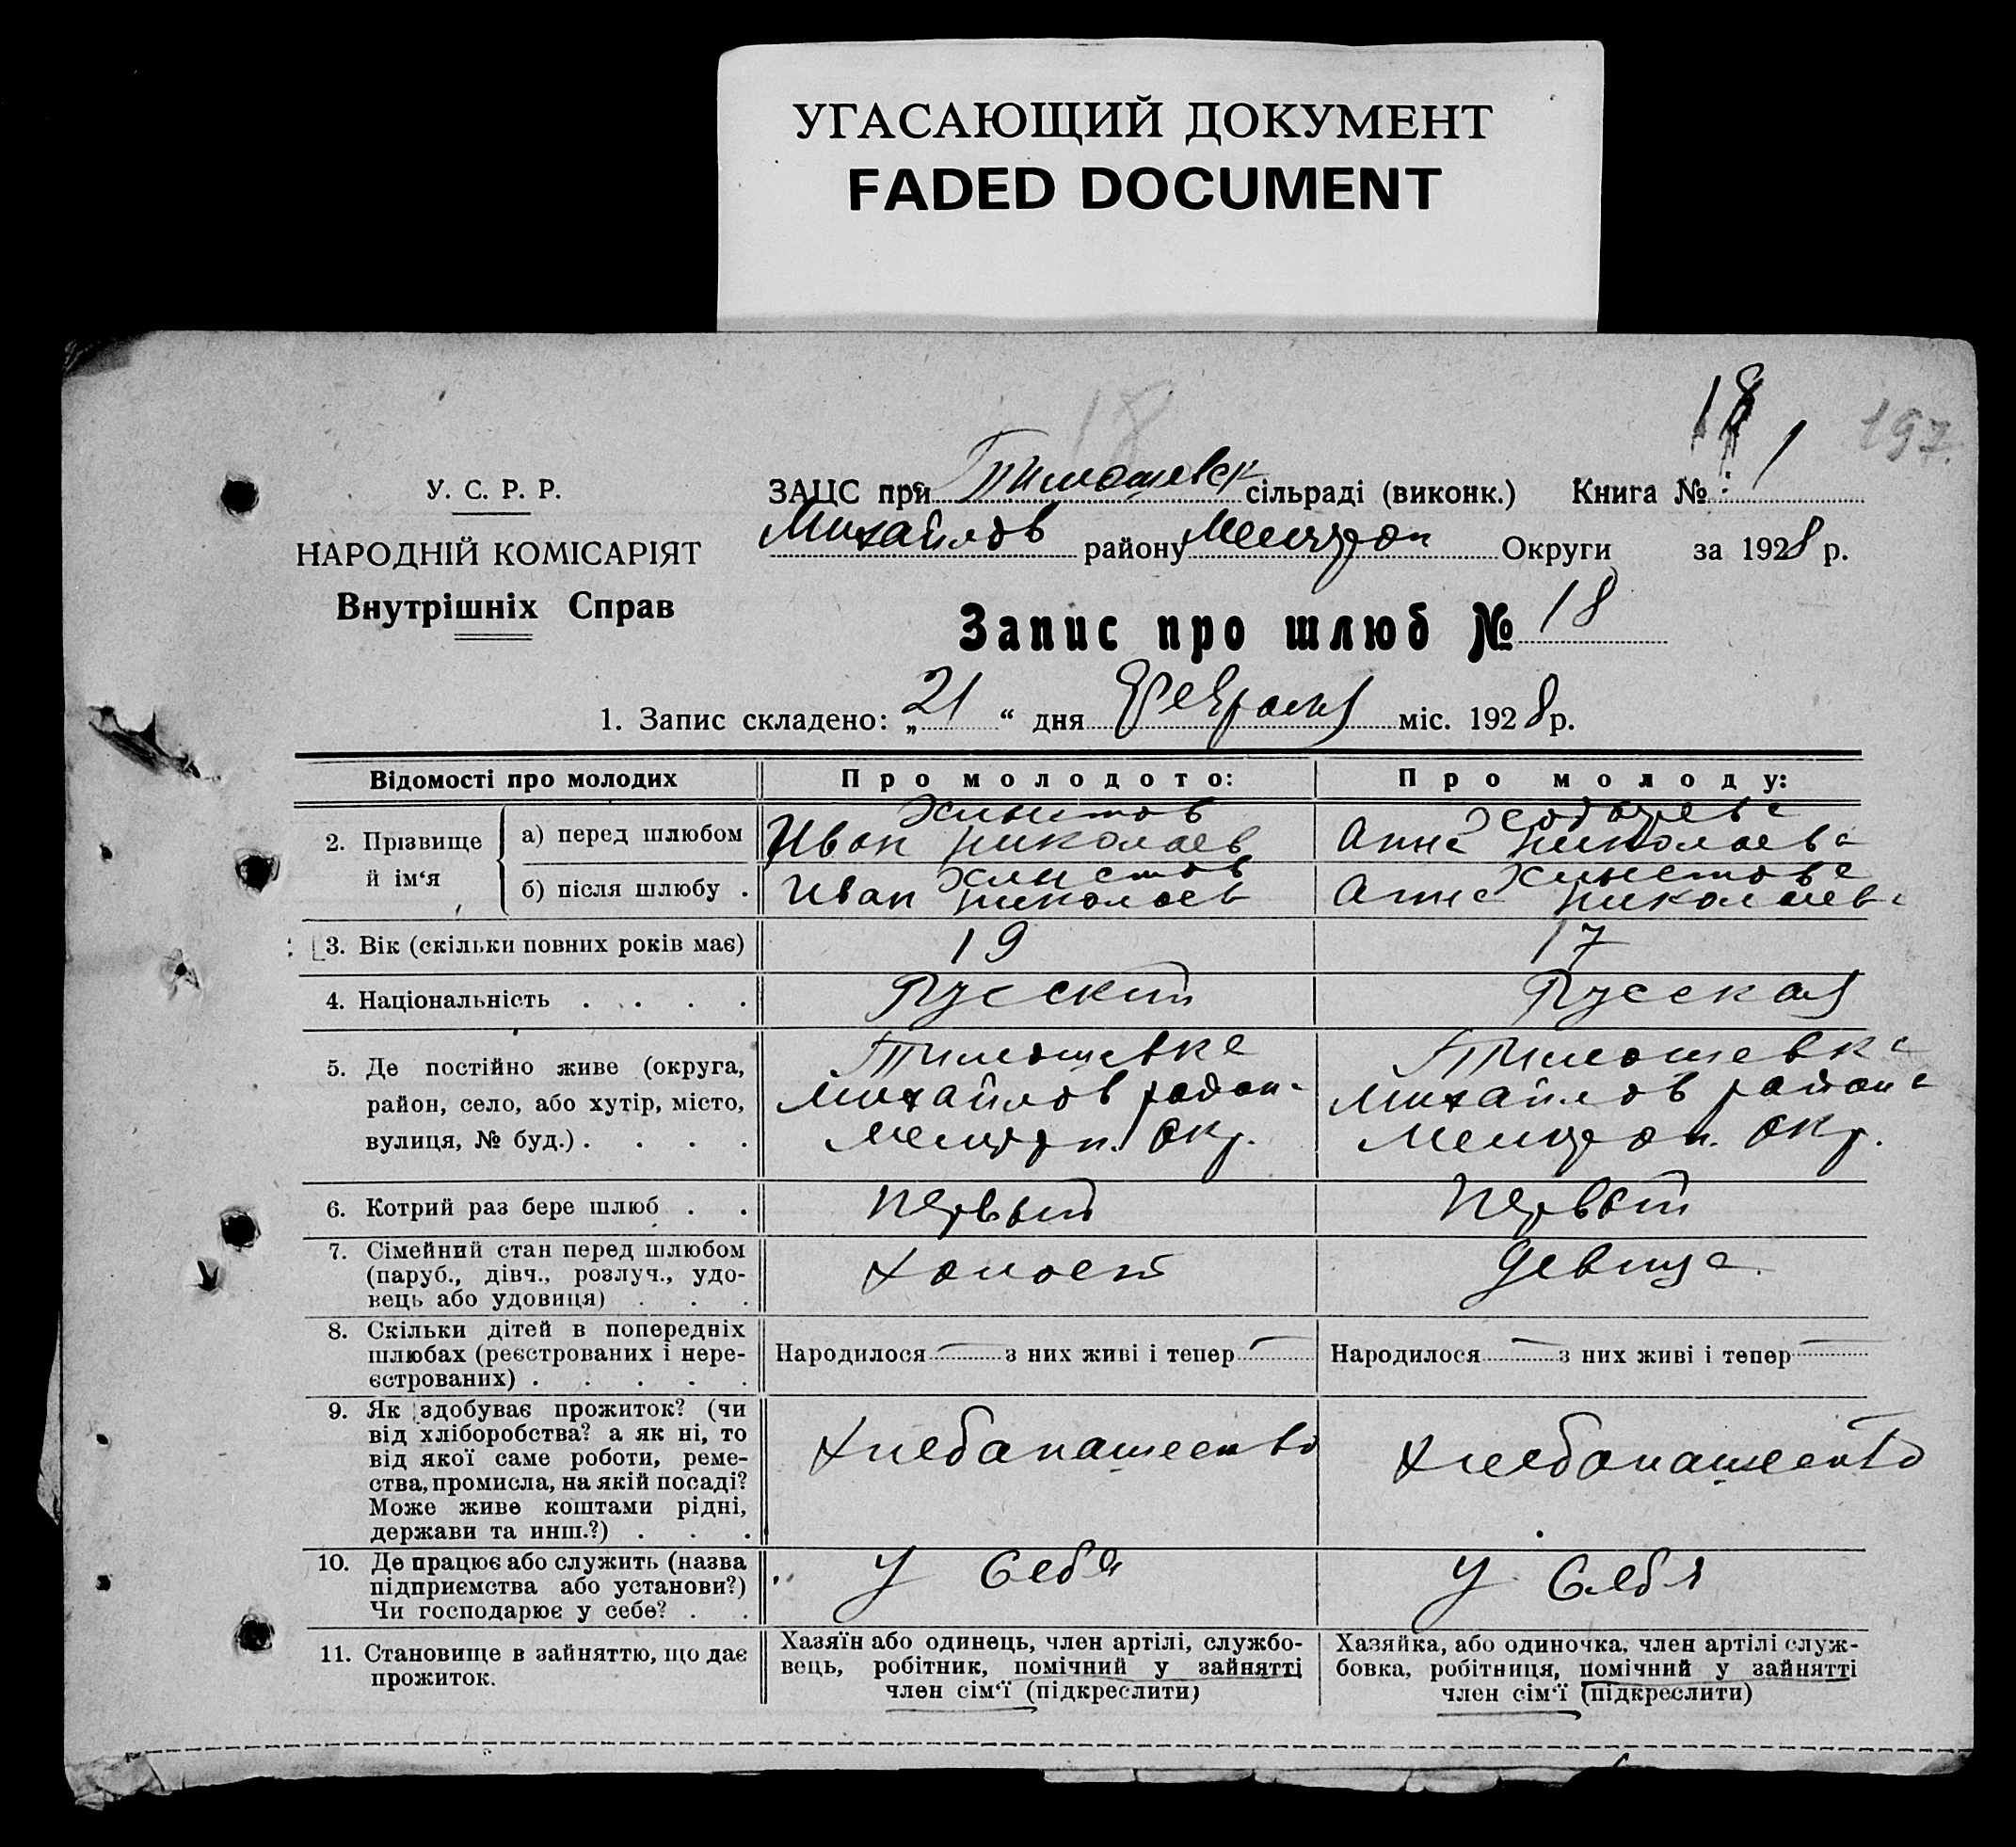 УГАСАЮЩИЙ ДОКУМЕНТ
FADED DOCUMENT
18
18
197.
У. С. Р. Р.
НАРОДНІЙ КОМІСАРІЯТ
Внутрішніх Справ
ЗАЦС при Тимошевск сільраді (виконк.) Книга № 1
Михайлов району Мелитоп Округи за 1928 р.
Запис про шлюб № 18
1. Запис складено: „21“ дня Февраля міс. 1928 р.
Відомості про молодих
Про молодого:
Про молоду:
2. Прізвище й ім‘я
а) перед шлюбом
Хлыстов
Иван Николаев
Анна Николаева
б) після шлюбу .
Хлыстов
Иван Николаев
Хлыстова
Анна Николаева
3. Вік (скільки повних років має)
19
17
4. Національність . . . .
Русский
Русская
5. Де постійно живе (округа,
район, село, або хутір, місто,
вулиця, № буд.) . . . .
Тимошевка
Михайлов района
Мелитоп. Окр.
Тимошевка
Михайлов района
Мелитоп. Окр.
6. Котрий раз бере шлюб . .
Первый
Первый
7. Сімейний стан перед шлюбом
(паруб., дівч., розлуч., удо-
вець або удовиця) . . .
Холост
Девица.
8. Скільки дітей в попередніх
шлюбах (реєстрованих і нере-
єстрованих) . . . . .
Народилося — з них живі і тепер —
Народилося — з них живі і тепер —
9. Як здобуває прожиток? (чи
від хліборобства? а як ні, то
від якої саме роботи, реме-
ства, промисла, на якій посаді?
Може живе коштами рідні,
держави та инш.?) . . .
Хлебопашество
Хлебопашество
10. Де працює або служить (назва
підприємства або установи?)
Чи господарює у себе? . .
У себя
У себя
11. Становище в зайняттю, що дає
прожиток.
Хазяїн або одинець, член артілі, службо-
вець, робітник, помічний у зайнятті
член сім‘ї (підкреслити)
Хазяйка, або одиночка, член артілі служ-
бовка, робітниця, помічний у зайнятті
член сім‘ї (підкреслити)